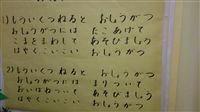 1) もういくつねると おしょうがつ
おしょうがつには たこあげて
こまをまわして あそびましょう
はやくこいこい おしょうがつ
2) もういくつねると おしょうがつ
おしょうがつには まりついて
おいばねついて あそびましょう
はやくこいこい おしょうがつ